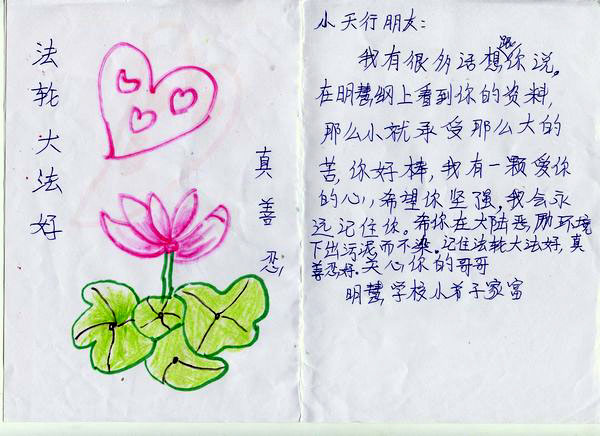 法轮大法好
真善忍
小天行朋友：
我有很多话想跟你说。
在明慧网上看到你的资料，
那么小就承受那么大的
苦，你好棒，我有一颗爱你
的心，希望你坚强，我会永
远记住你。希你在大陆恶励环境
下出污泥而不染。记住法轮大法好，真
善忍好。关心你的哥哥
明慧学校小弟子家富